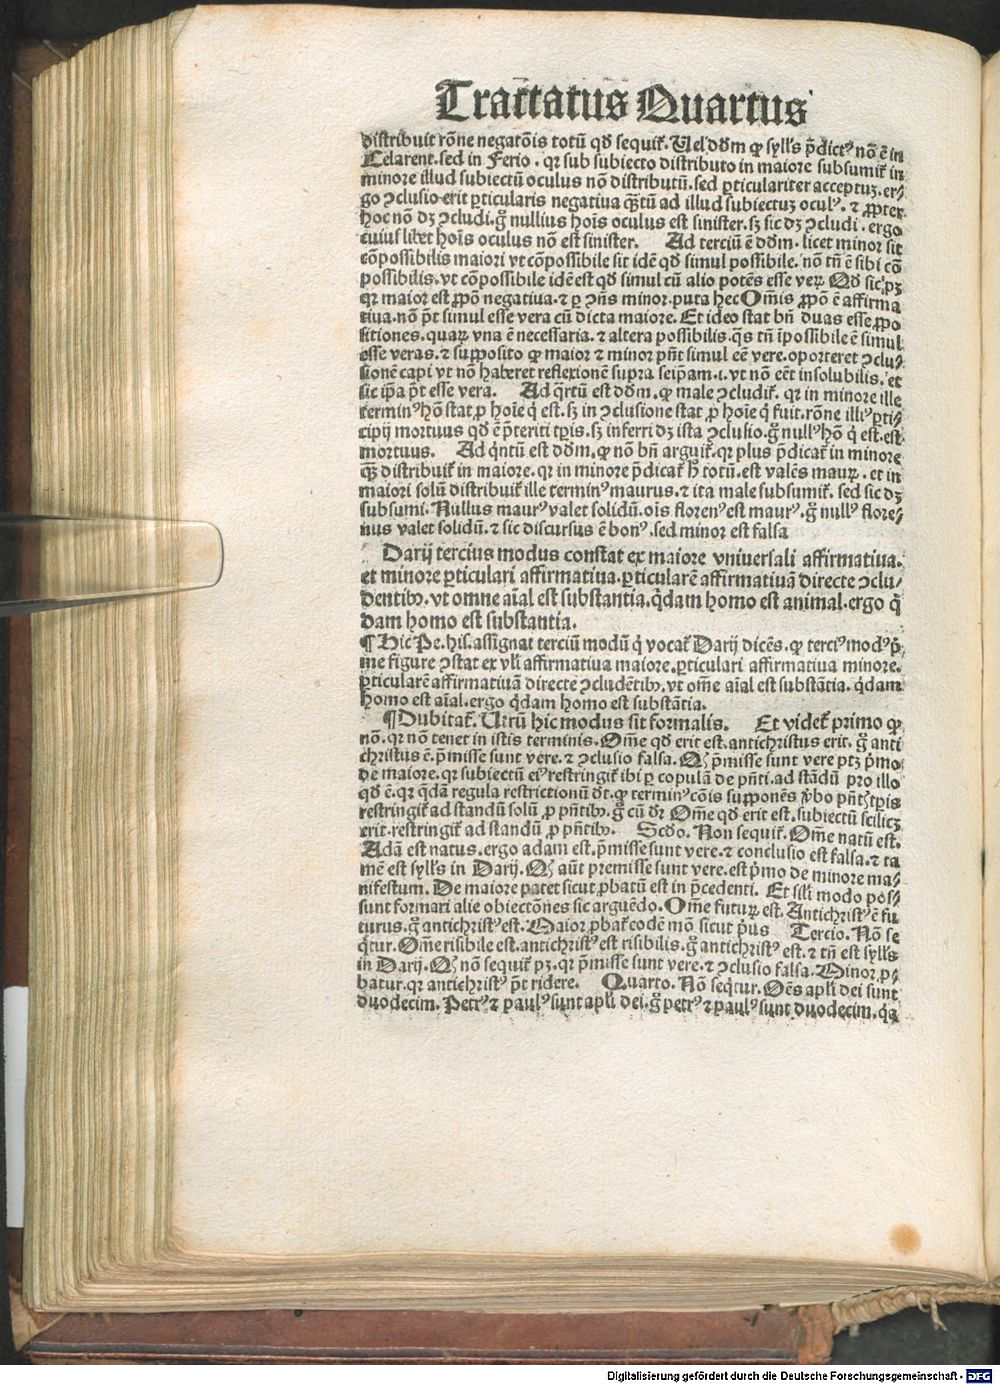 Tractatus Quartus
distribuit rõne negatõis totũ qđ sequit᷑. Uel đđm ꝙ sylls p̃dictꝰ nõ ẽ in
Celarent. sed in Ferio. qꝛ sub subiecto distributo in maiore subsumit᷑ in
minore illud subiectũ oculus nõ distributũ. sed ꝑticulariter acceptuꝫ. er⸗
go ꝯclusio erit ꝑticularis negatiua q̃tũ ad illud subiectuꝫ oculꝰ. ⁊ ꝓpter
hoc nõ dꝫ ꝯcludi. g̃ nullius hoĩs oculus est sinister. sꝫ sic dꝫ ꝯcludi. ergo
cuiuslibet hoĩs oculus nõ est sinister. Ad terciũ ẽ đđm. licet minor sit
cõpossibilis maiori vt cõpossibile sit idẽ qđ simul possibile. nõ tñ ẽ sibi cõ
possibilis. vt cõpossibile idẽ est qđ simul cũ alio potẽs esse veꝝ. Qđ sic pꝫ
qꝛ maior est ꝓpõ negatiua. ⁊ ꝑ ꝯñs minor. puta hec Om̃is ꝓpõ ẽ affirma
tiua. nõ p̃t simul esse vera cũ dicta maiore. Et ideo stat bñ duas esse ꝓpo
sitiones. quaꝝ vna ẽ necessaria. ⁊ altera possibilis. q̃s tñ ĩpossibile ẽ simul
esse veras. ⁊ supposito ꝙ maior ⁊ minor pñt simul eẽ vere. oporteret ꝯclu⸗
sionẽ capi vt nõ haberet reflexionẽ supra seip̃am. i. vt nõ eẽt insolubilis. et
sic ip̃a p̃t esse vera. Ad q̃rtũ est đđm. ꝙ male ꝯcludit᷑. qꝛ in minore ille
terminꝰ hõ stat ꝓ hoĩe q̇ est. sꝫ in ꝯclusione stat ꝓ hoĩe q̇ fuit. rõne illiꝰ ꝑti⸗
cipij mortuus qđ ẽ p̃teriti tp̃is. sꝫ inferri dꝫ ista ꝯclusio. g̃ nullꝰ hõ q̇ est. est
mortuus. Ad q̇ntũ est đđm. ꝙ nõ bñ arguit᷑. qꝛ plus p̃dicat᷑ in minore
q̃ꝫ distribuit᷑ in maiore. qꝛ in minore p̃dicat᷑ h̃ totũ. est valẽs mauꝝ. et in
maiori solũ distribuit᷑ ille terminꝰ maurus. ⁊ ita male subsumit᷑. sed sic dꝫ
subsumi. Nullus maurꝰ valet solidũ. oĩs florenꝰ est maurꝰ. g̃ nullꝰ flore⸗
nus valet solidũ. ⁊ sic discursus ẽ bonꝰ. sed minor est falsa
Darij tercius modus constat ex maiore vniuersali affirmatiua.
et minore ꝑticulari affirmatiua. ꝑticularẽ affirmatiuã directe ꝯclu⸗
dentibꝰ. vt omne aĩal est substantia. q̇dam homo est animal. ergo q̇
dam homo est substantia.
¶ Hic Pe. his. assignat terciũ modũ q̇ vocat᷑ Darij dicẽs. ꝙ terciꝰ modꝰ p̃⸗
me figure ꝯstat ex vl̃i affirmatiua maiore. ꝑticulari affirmatiua minore.
ꝑticularẽ affirmatiuã directe ꝯcludẽtibꝰ. vt om̃e aĩal est substãtia. q̇dam
homo est aĩal. ergo q̇dam homo est substãtia.
¶ Dubitat᷑. Utrũ hic modus sit formalis. Et videt᷑ primo ꝙ
nõ. qꝛ nõ tenet in istis terminis. Om̃e qđ erit est. antichristus erit. g̃ anti
christus ẽ. p̃misse sunt vere. ⁊ ꝯclusio falsa. Qꝫ p̃misse sunt vere ptꝫ p̃mo
de maiore. qꝛ subiectũ eiꝰ restringit᷑ ibi ꝑ copulã de p̃nti. ad stãdũ pro illo
qđ ẽ. qꝛ q̇dã regula restrictionũ đt. ꝙ terminꝰ cõis supponẽs ṽbo p̃ntꝭ tp̃is
restringit᷑ ad standũ solũ ꝓ p̃ntibꝰ. g̃ cũ đr Om̃e qđ erit est. subiectũ scilicꝫ
erit. restringit᷑ ad standũ ꝓ p̃ntibꝰ. Scđo. Non sequit᷑. Om̃e natũ est.
Adã est natus. ergo adam est. p̃misse sunt vere. ⁊ conclusio est falsa. ⁊ ta
mẽ est sylls in Darij. Qꝫ aũt premisse sunt vere. est p̃mo de minore ma⸗
nifestum. De maiore patet sicut ꝓbatũ est in p̃cedenti. Et sil̃i modo pos⸗
sunt formari alie obiectõnes sic arguẽdo. Om̃e futuꝝ est. Antichristꝰ ẽ fu
turus. g̃ antichristꝰ est. Maior ꝓbat᷑ eodẽ mõ sicut p̃us Tercio. Nõ se
q̇tur. Om̃e risibile est. antichristꝰ est risibilis. g̃ antichristꝰ est. ⁊ tñ est sylls
in Darij. Qꝫ nõ sequit᷑ pꝫ. qꝛ p̃misse sunt vere. ⁊ ꝯclusio falsa. Minor ꝓ⸗
batur. qꝛ antichristꝰ p̃t ridere. Quarto. Nõ seq̇tur. Oẽs apl̃i dei sunt
duodecim. Petrꝰ ⁊ paulꝰ sunt apl̃i dei. g̃ petrꝰ ⁊ paulꝰ sunt duodecim. q̇a
Digitalisierung gefördert durch die Deutsche Forschungsgemeinschaft - DFG